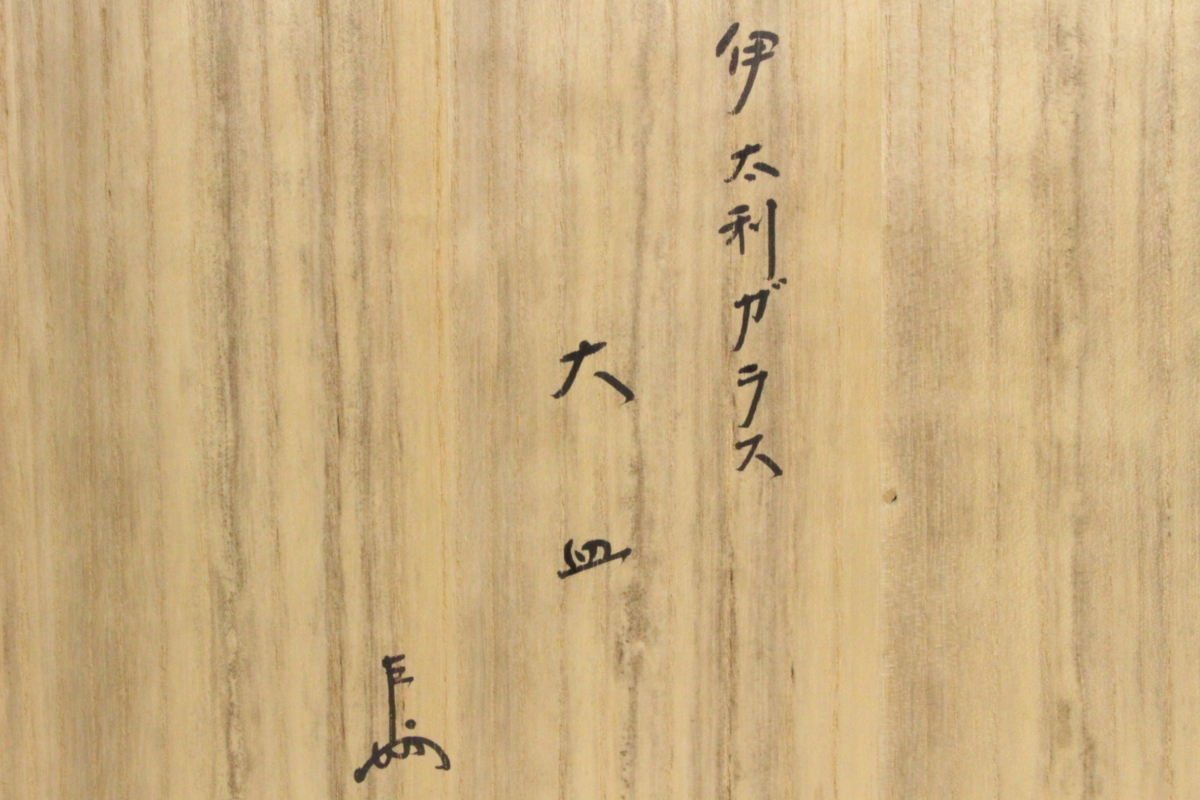 伊太利ガラス
大皿